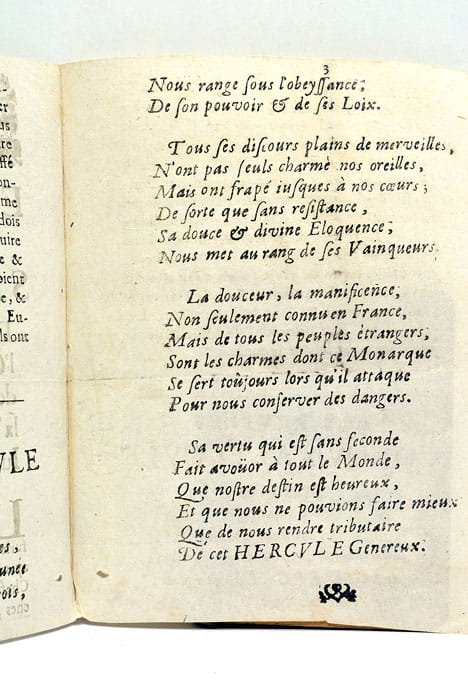 er
us
tre
ffé
on-
me
dois
utre
e &
oient
e, &
Eu-
ls ont
VLE
es,
unée
rois,
3
Nous range sous l'obeyssance;
De son pouvoir & de ses Loix.
Tous ses discours plains de merveilles,
N'ont pas seuls charmè nos oreilles,
Mais ont frapé iusques à nos cœurs;
De sorte que sans resistance,
Sa douce & divine Eloquence;
Nous met au rang de ses Vainqueurs.
La douceur, la manificence,
Non seulement connu en France,
Mais de tous les peuples ètrangers,
Sont les charmes dont ce Monarque
Se sert toûjours lors qu'il attaque
Pour nous conserver des dangers.
Sa vertu qui est sans seconde
Fait avoüor à tout le Monde,
Que nostre destin est heureux,
Et que nous ne pouvions faire mieux
Que de nous rendre tributaire
De cet HERCVLE Genereux.